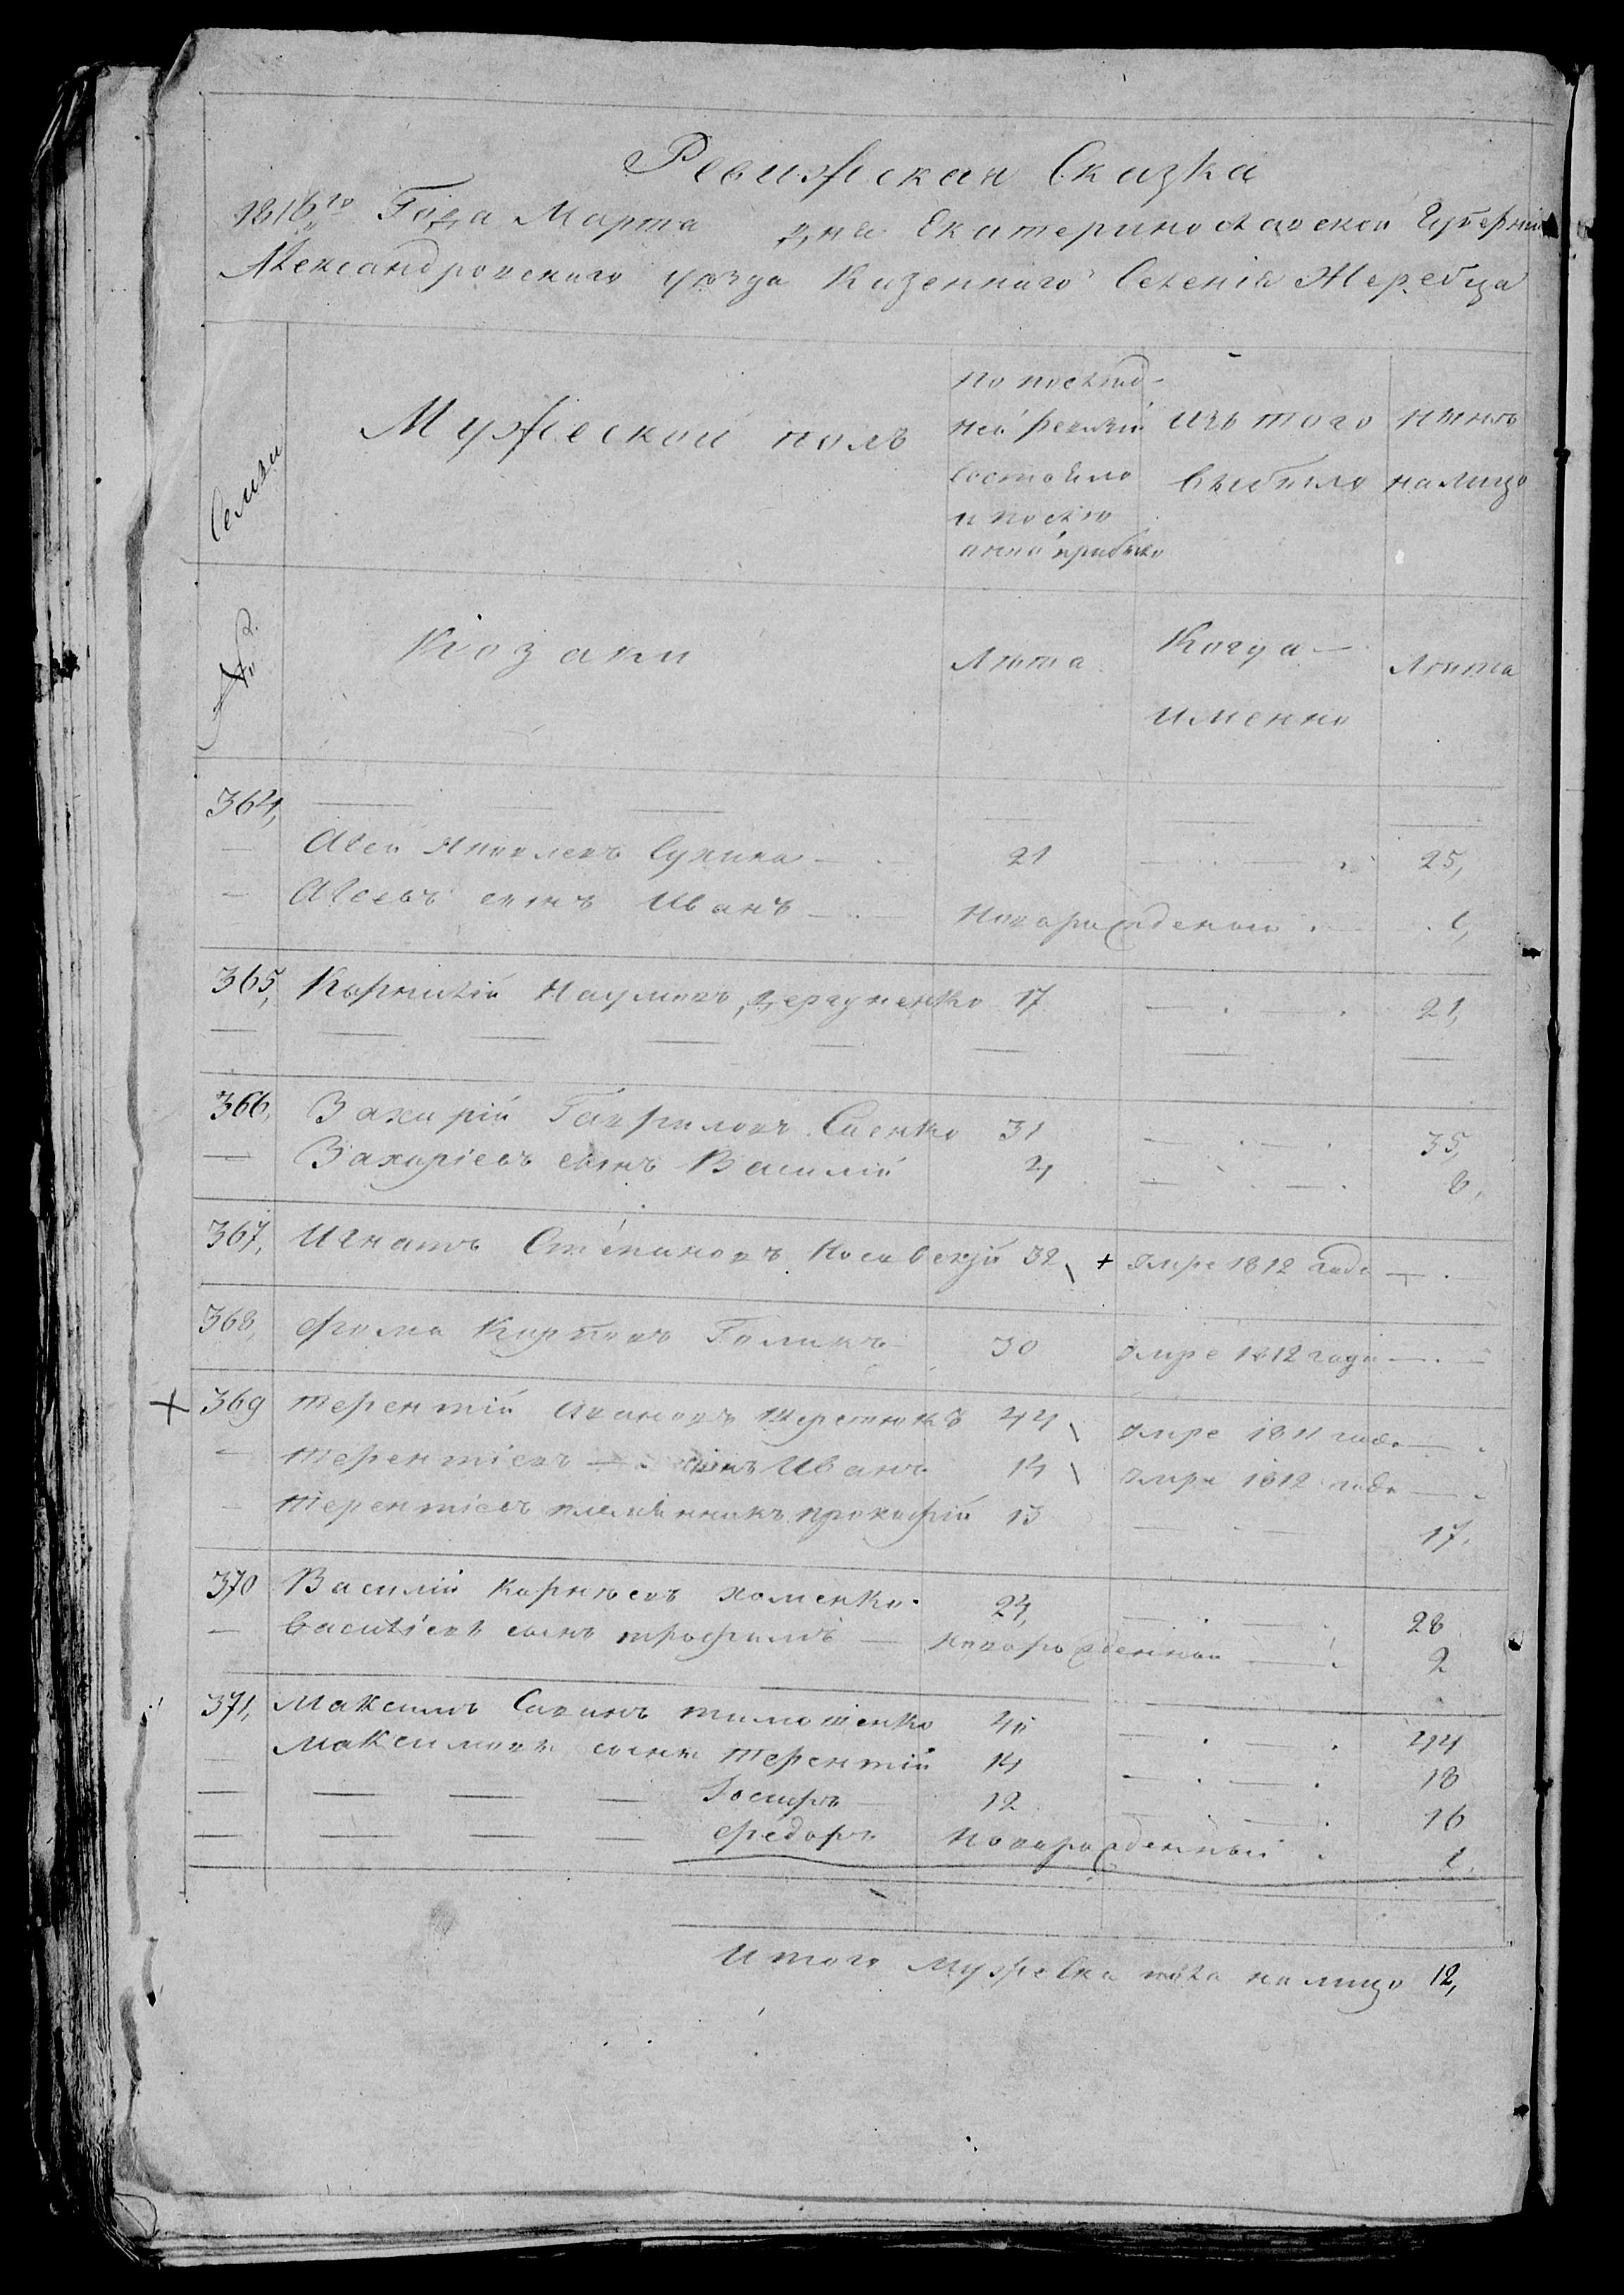 Ревижская Сказка
1816го Года Марта дня Екатеринославской Губерній
Александровскаго уезда Казеннаго Селенія Жеребца
Семьи
Мужеской полъ
По послед-
ней ревизіи
состояло
и после
оной прибыло
изъ того
выбыло
ныне
налицо
№
Козаки
Лета
Когда
именно
Лета
364, — —
— Яковлевъ Сухина — 21 — 25,
— сынъ Иванъ — Новорожденный 1,
365, Корнилій Наумовъ Дергуненко 17 — 21,
366, Захарій Гавриловъ Саенко 31 — 35,
— Захаріевъ сынъ Василій 4 — 8,
367, Игнатъ Степановъ 32 + умре 1812 года —
368, Фома Карповъ Голикъ 30 умре 1812 года —
+ 369 Терентій Ивановъ 44 умре 1811 года —
— Терентіевъ — сынъ Иванъ 14 умре 1812 года —
— Терентіевъ племянникъ Прокофій 13 — 17,
370 Василій Корнеевъ Хоменко 24, — 28
— Василіевъ сынъ Трофимъ — Новорожденный — 2
371, Максимъ Савинъ Тимошенко 40 — 44
— Максимовъ сынъ Терентій 14 — 18
— — — — Іосифъ — 12 — 16
— — — — Федоръ Новорожденный 1.
Итого мужеска пола налицо 12,